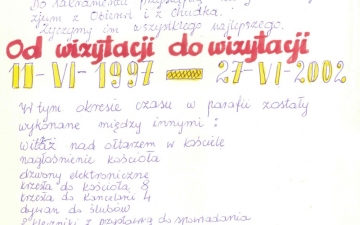 Do sakramentu
zjum z Obiems i z chudka.
"Życzymy im wszystkiego najlepszego.
Od wizytacji do wizytacji
11-VI-1997 27-VI-2002
W tym okresie czasu w parafii zostały
wykonane między innymi:
witraż nad ołtarzem w kościele
nagłośnienie kościoła
dzwony elektroniczne
krzesła do kościoła 8
krzesła do kancelarii 4
dywan do ślubów
klęczniki z przystawką do spowiadania